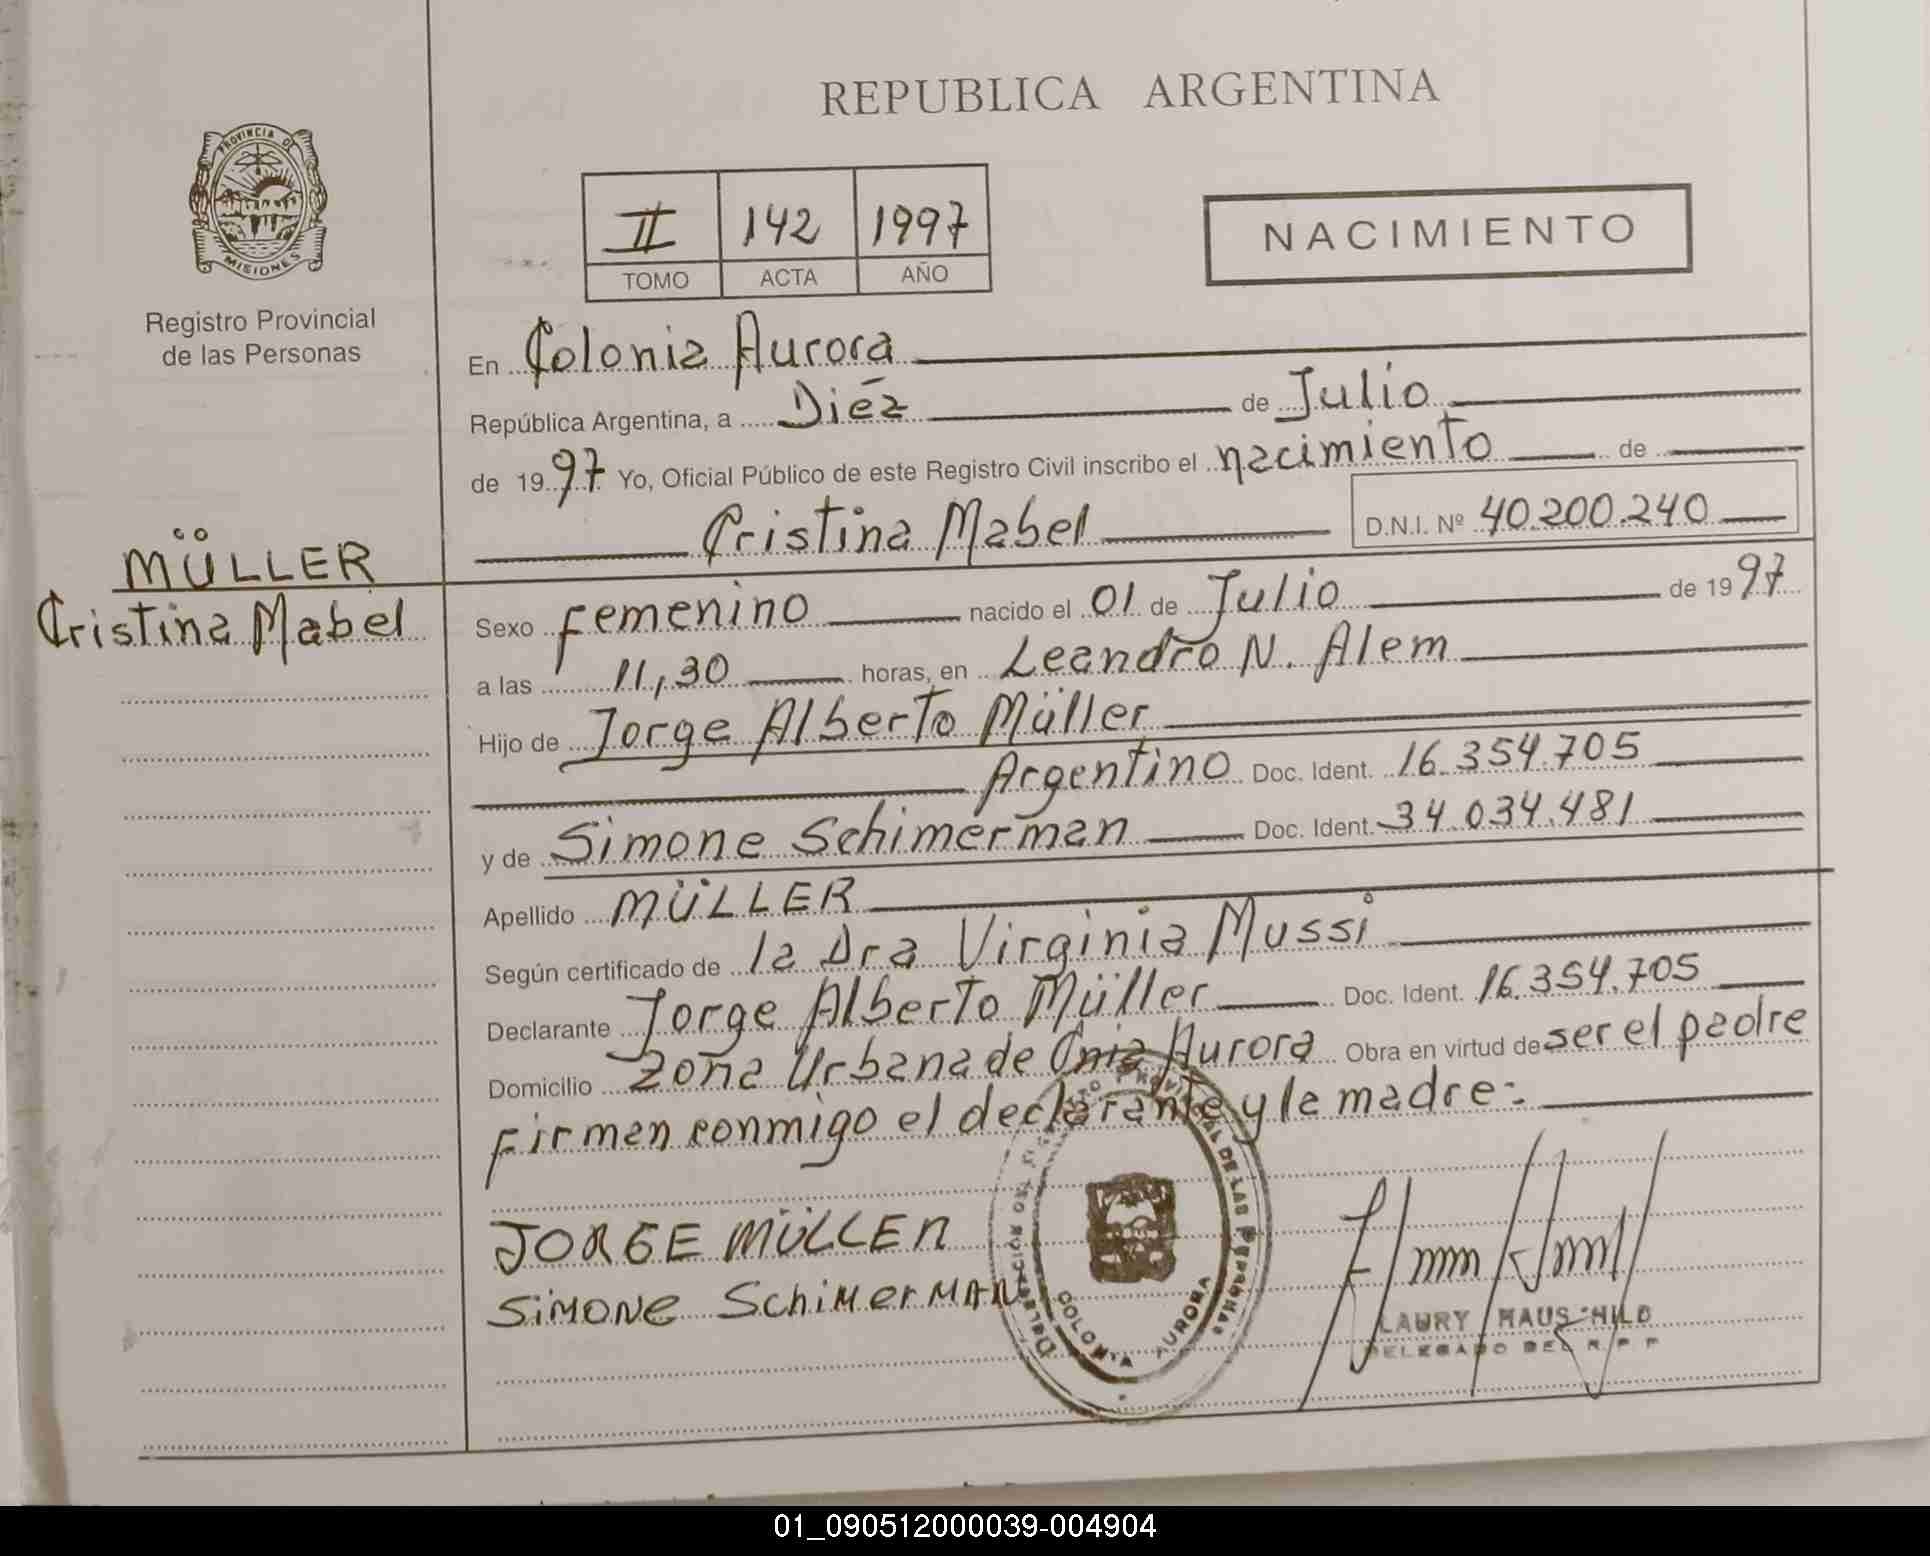 REPUBLICA ARGENTINA
PROVINCIA DE
MISIONES
Registro Provincial
de las Personas
II 142 1997
TOMO ACTA AÑO
NACIMIENTO
En Colonia Aurora
República Argentina, a Diéz de Julio
de 1997 Yo, Oficial Público de este Registro Civil inscribo el nacimiento de
Cristina Mabel D.N.I. Nº 40.200.240
MÜLLER
Cristina Mabel
Sexo Femenino nacido el 01 de Julio de 1997
a las 11,30 horas, en Leandro N. Alem
Hijo de Jorge Alberto Müller
Argentino Doc. Ident. 16.354.705
y de Simone Schimerman Doc. Ident. 34.034.481
Apellido MÜLLER
Según certificado de la Dra Virginia Mussi
Declarante Jorge Alberto Müller Doc. Ident. 16.354.705
Domicilio Zona Urbana de Cnia Aurora Obra en virtud de ser el padre
Firman conmigo el declarante y la madre:
JORGE MÜLLER
SiMONE SchiMerMAN
COLONIA AURORA
LAURY HAUSCHILD
DELEGADO DEL R.P.P
01_090512000039-004904